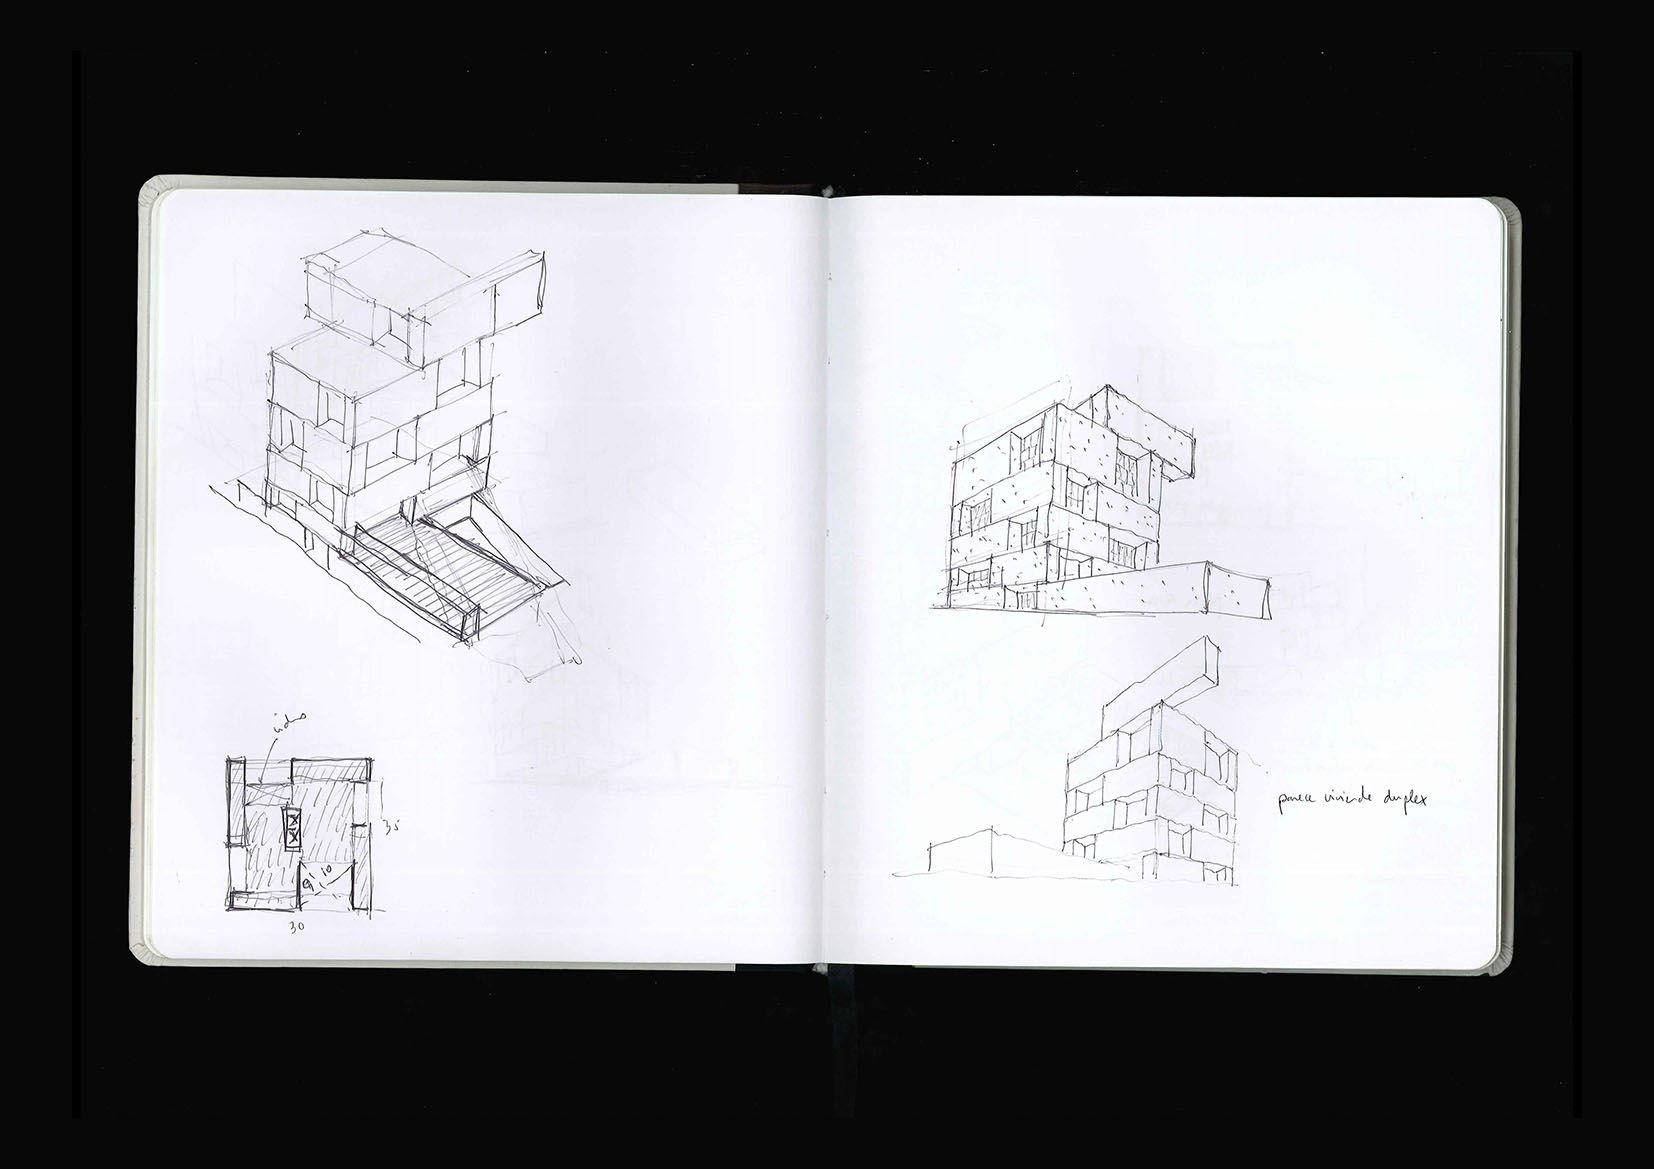 vidrio
35
10
30
parece vivienda duplex